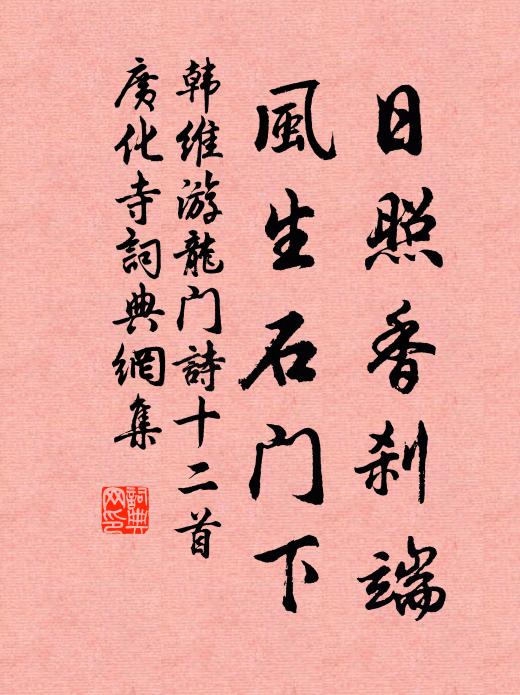 日照香刹端
風生石门下
韩维游龍门詩十二首
廣化寺詞典網集
詞典网印